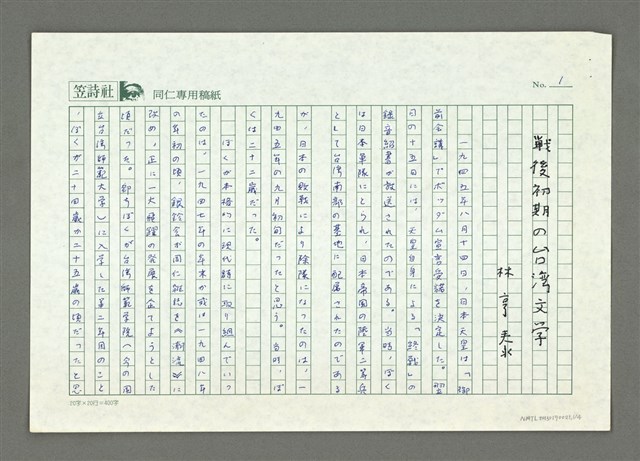 笠詩社
同仁専用稿紙
No. 1
戦後初期の台湾文学
林亨泰
一九四五年八月十四日、日本天皇は「御
前会議」でポツダム宣言受諾を決定した。翌
日の十五日には、天皇自身による「終戦」の
録音紹書が放送されたのである。当時、ぼく
は日本軍隊にとられ、日本帝国の陸軍二等兵
として台湾南部の基地に配属されたのである
が、日本の敗戦により除隊になったのは、一
九四五年の九月初旬だったと思う。当時、ぼ
くは二十二歳だった。
ぼくが本格的に現代詩に取り組んでいっ
たのは、一九四七年の年末か或は一九四八年
の年初の頃、銀鈴会が同仁雑誌を《潮流》に
改め、正に一大飛躍の発展を企てようとした
頃だった。即ちぼくが台湾師範学院（今の国
立台湾師範大学）に入学した第二年目のこと
、ぼくが二十四歳か二十五歳の頃だったと思
20字×20行=400字